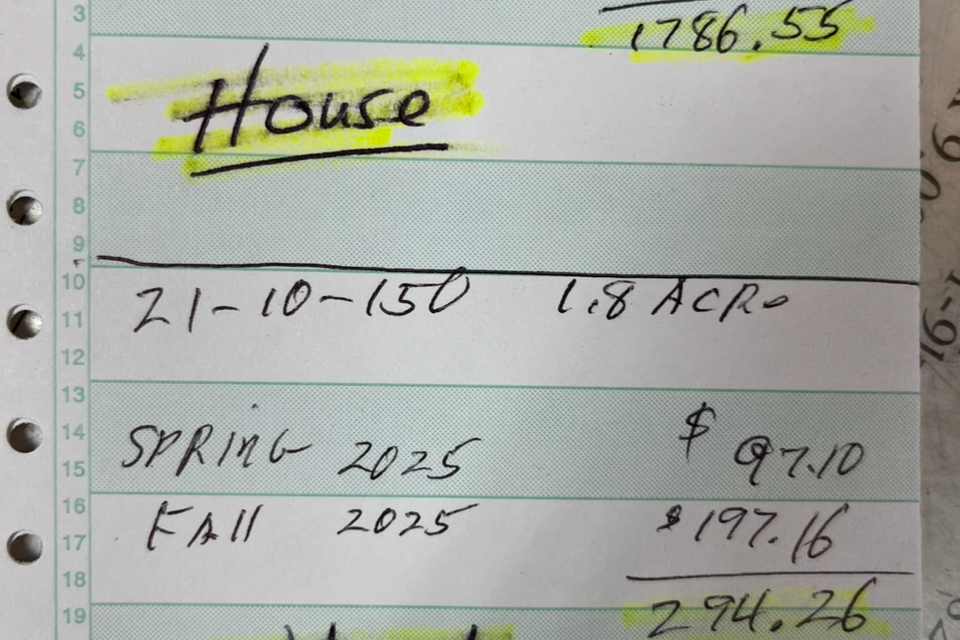 3
1786.55
4
5
House
6
7
8
9
10
21-10-150 1.8 ACRe
11
12
13
14
SPRING 2025 $ 97.10
15
16
FAll 2025 $197.16
17
18
294.26
19